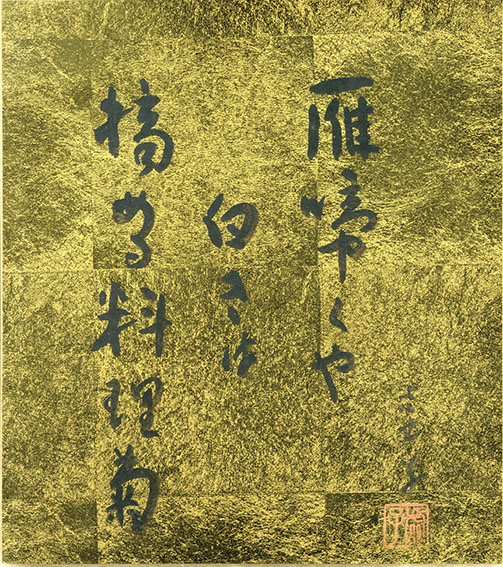 雁啼くや
白きは
摘める料理菊